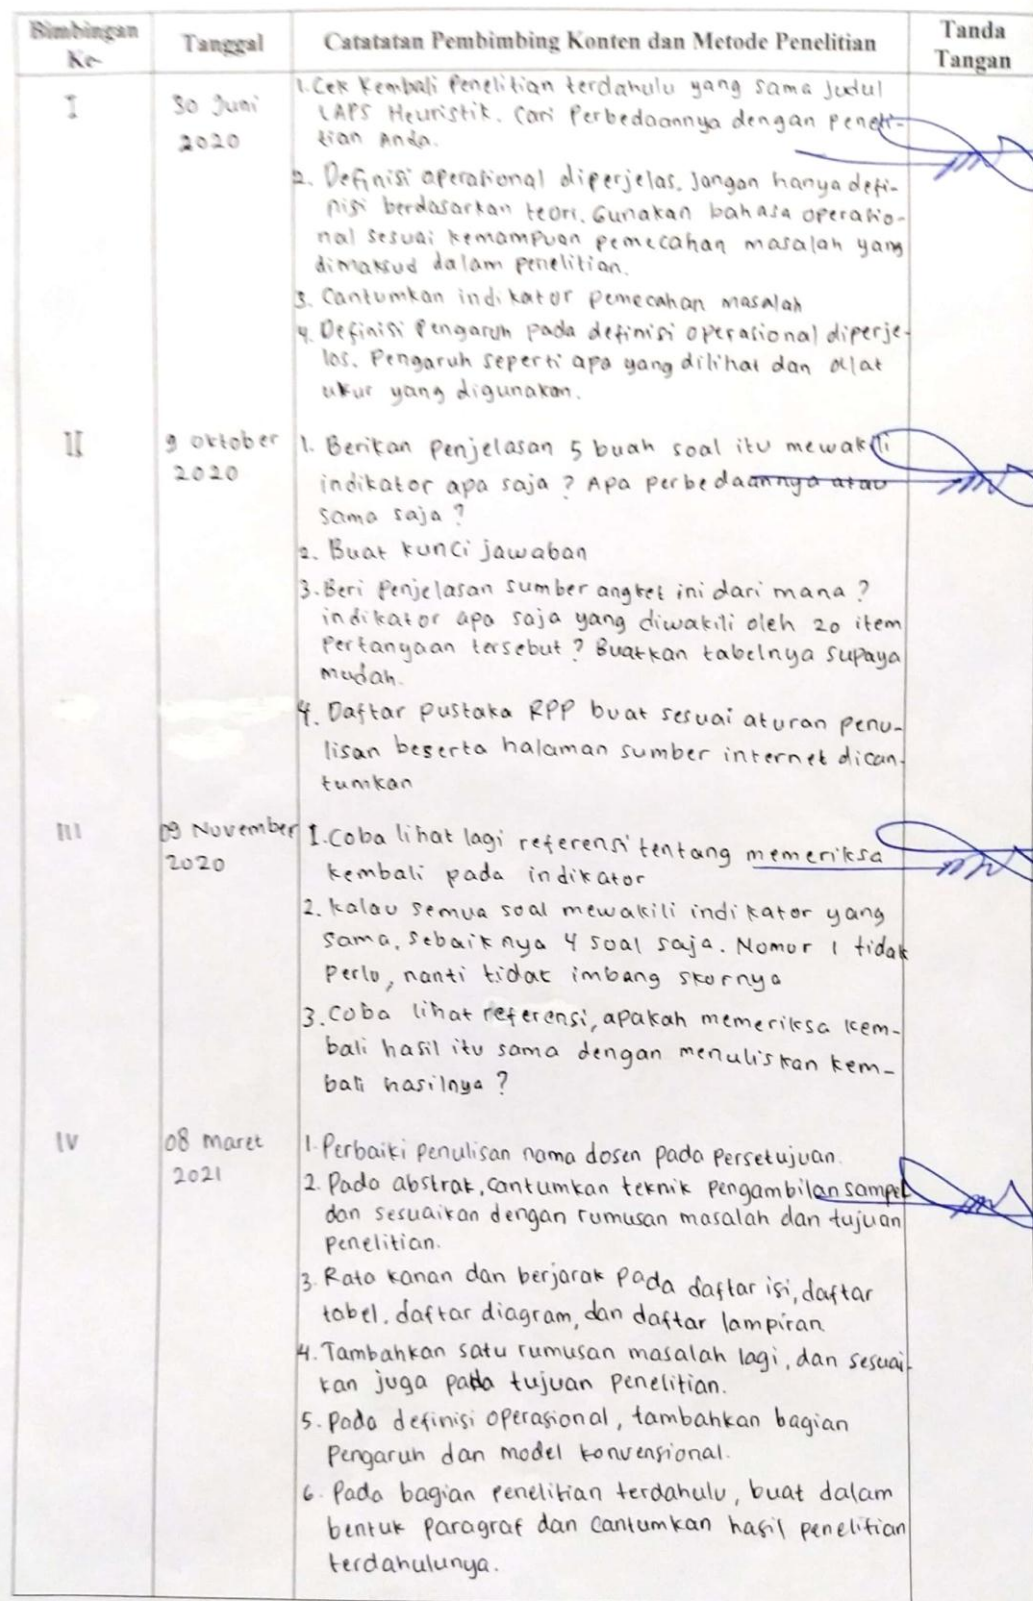 Bimbingan Ke-
Tanggal
Catatatan Pembimbing Konten dan Metode Penelitian
Tanda Tangan
I
30 Juni
2020
1. Cek Kembali Penelitian terdahulu yang sama judul
LAPS Heuristik. Cari Perbedaannya dengan Peneli-
tian Anda.
2. Definisi operasional diperjelas. Jangan hanya defi-
nisi berdasarkan teori. Gunakan bahasa operasio-
nal sesuai kemampuan pemecahan masalah yang
dimaksud dalam penelitian.
3. Cantumkan indikator pemecahan masalah
4. Definisi Pengaruh pada definisi operasional diperje-
las. Pengaruh seperti apa yang dilihat dan alat
ukur yang digunakan.
II
9 oktober
2020
1. Berikan Penjelasan 5 buah soal itu mewakili
indikator apa saja? Apa perbedaannya atau
sama saja?
2. Buat kunci jawaban
3. Beri Penjelasan sumber angket ini dari mana?
indikator apa saja yang diwakili oleh 20 item
Pertanyaan tersebut? Buatkan tabelnya supaya
mudah.
4. Daftar pustaka RPP buat sesuai aturan penu-
lisan beserta halaman sumber internet dican-
tumkan
III
09 November
2020
1. Coba lihat lagi referensi tentang memeriksa
kembali pada indikator
2. kalau semua soal mewakili indikator yang
sama, sebaiknya 4 soal saja. Nomor 1 tidak
perlu, nanti tidak imbang skornya
3. Coba lihat referensi, apakah memeriksa kem-
bali hasil itu sama dengan menuliskan kem-
bali hasilnya?
IV
08 maret
2021
1. Perbaiki penulisan nama dosen pada persetujuan.
2. Pada abstrak, cantumkan teknik pengambilan sampel
dan sesuaikan dengan rumusan masalah dan tujuan
penelitian.
3. Rata kanan dan berjarak pada daftar isi, daftar
tabel, daftar diagram, dan daftar lampiran.
4. Tambahkan satu rumusan masalah lagi, dan sesuai-
kan juga pada tujuan penelitian.
5. Pada definisi operasional, tambahkan bagian
Pengaruh dan model konvensional.
6. Pada bagian penelitian terdahulu, buat dalam
bentuk paragraf dan cantumkan hasil penelitian
terdahulunya.